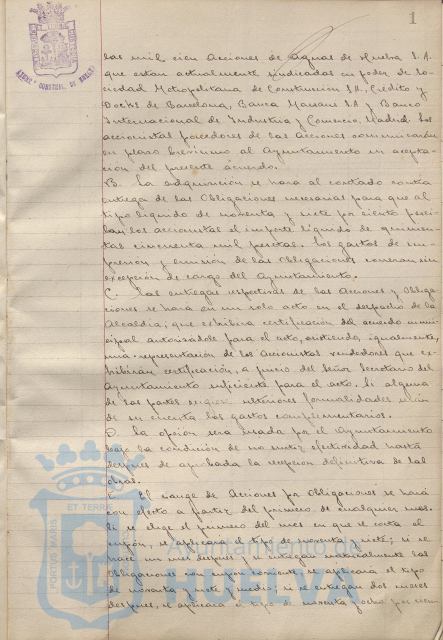 1
las mil cien Acciones de Aguas de Huelva S.A.
que estan actualmente sindicadas en poder de So-
ciedad Metropolitana de Construcción S.A, Crédito y
Docks de Barcelona, Banca Marsans S.A y Banco
Internacional de Industria y Comercio, Madrid. Los
accionistas poseedores de las acciones comunicarán
en plazo brevísimo al Ayuntamiento su acepta-
ción del presente acuerdo.
B. La adquisición se hará al contado contra
entrega de las Obligaciones necesarias para que al
tipo líquido de noventa y siete por ciento perci-
ban los accionistas el importe líquido de quinien-
tas cincuenta mil pesetas. Los gastos de im-
presión y emisión de las Obligaciones correrán sin
excepción de cargo del Ayuntamiento.
C. Las entregas respectivas de las Acciones y Obliga-
ciones se hará en un solo acto en el despacho de la
Alcaldía; que exhibirá certificación del acuerdo muni-
cipal autorizándole para el acto, emitiendo, igualmente,
una representación de los Accionistas vendedores que ex-
hibirán certificación, a juicio del Señor Secretario del
Ayuntamiento suficiente para el acto. Si alguna
de las partes exigiera ulteriores formalidades serán
de su cuenta los gastos complementarios.
D La opción será usada por el Ayuntamiento
bajo la condición de no surtir efectividad hasta
después de aprobada la recepción definitiva de las
obras.
E. El canje de Acciones por Obligaciones se hará
con efecto a partir del primero de cualquier mes.
Si se elige el primero del mes en que se corta el
cupón, se aplicará el tipo de noventa y siete; si se
hace un mes después y se entregan naturalmente las
Obligaciones con cupón corriente se aplicará el tipo
de noventa y siete y medio; si se entregan dos meses
después, se aplicará el tipo de noventa y ocho por cien-
PORTUS MARIS
ET TERRE
Ayuntamiento de
HUELVA